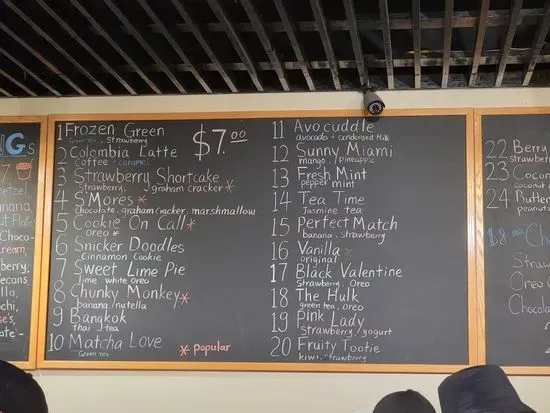 NGs
7
retzel,
anana,
ut Flake
Choco-
ream,
berry,
ecans
lla,
chi,
se's,
ate-
$7.00
1 Frozen Green
Green Tea, Strawberry
2 Colombia Latte
Coffee + caramel
3 Strawberry Shortcake
Strawberry, graham cracker *
4 S'Mores *
Chocolate, graham cracker, marshmallow
5 Cookie On Call *
Oreo *
6 Snicker Doodles
Cinnamon Cookie
7 Sweet Lime Pie
lime white Oreo
8 Chunky Monkey *
banana/nutella
9 Bangkok
thai tea
10 Matcha Love
Green Tea
* popular
11 Avocuddle
avocado + condensed Milk
12 Sunny Miami
mango, /Pineapple
13 Fresh Mint
pepper mint
14 Tea Time
Jasmine tea
15 Perfect Match
banana, strawberry
16 Vanilla
original
17 Black Valentine
Strawberry, Oreo
18 The Hulk
green tea, oreo
19 Pink Lady
Strawberry/yogurt
20 Fruity Tootie
kiwi, strawberry
22 Berry
Strawberr
23 Cocon
Coconut
24 Butter
peanut
$8.00 Ch
Straw
Oreo
Chocola